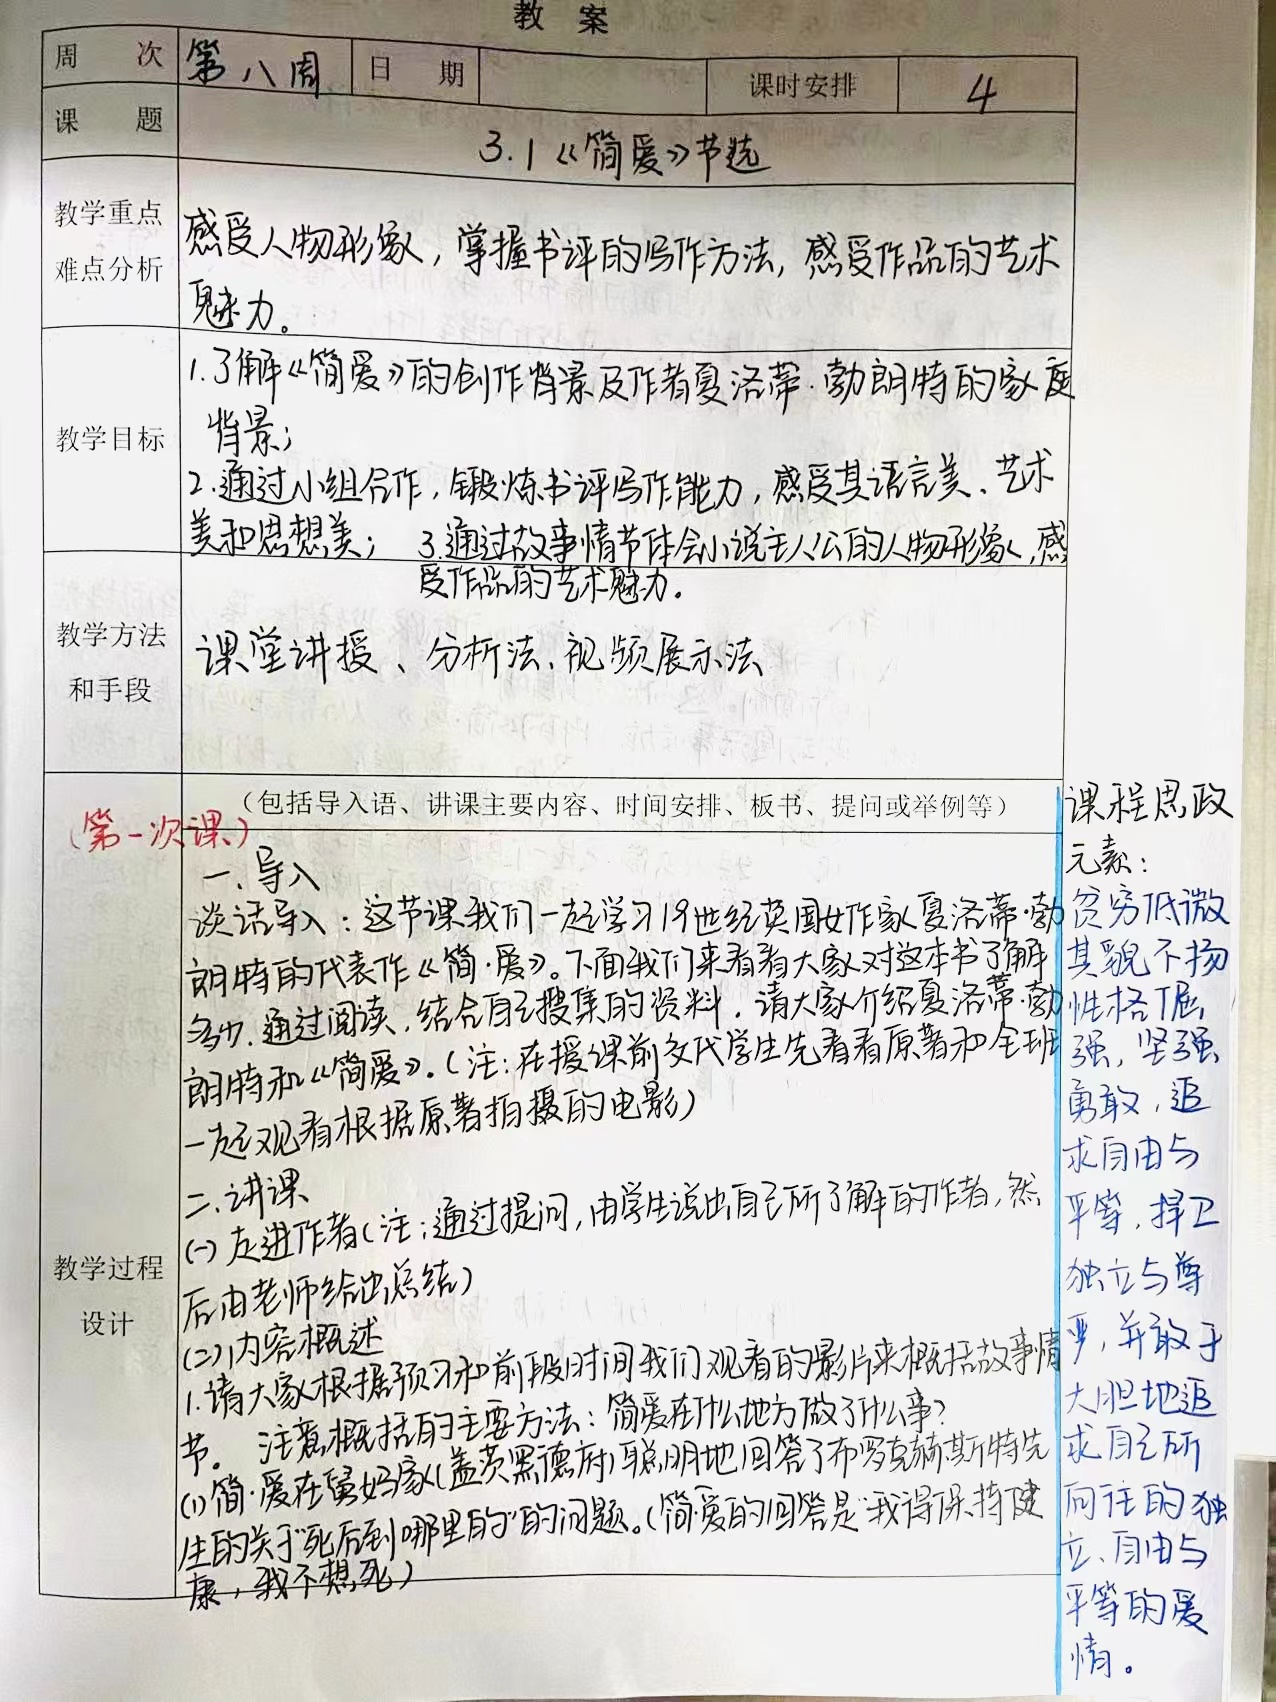 教 案
周 次 第八周 日 期 课时安排 4
课 题
3.1《简爱》节选
教学重点
难点分析
感受人物形象，掌握书评的写作方法，感受作品的艺术
魅力。
教学目标
1.了解《简爱》的创作背景及作者夏洛蒂·勃朗特的家庭
背景；
2.通过小组合作，锻炼书评写作能力，感受其语言美、艺术
美和思想美； 3.通过故事情节体会小说主人公的人物形象，感
受作品的艺术魅力。
教学方法
和手段
课堂讲授、分析法、视频展示法
（包括导入语、讲课主要内容、时间安排、板书、提问或举例等）
（第一次课）
教学过程
设计
一、导入
谈话导入：这节课我们一起学习19世纪英国女作家夏洛蒂·勃
朗特的代表作《简·爱》。下面我们来看看大家对这本书了解
多少，通过阅读，结合自己搜集的资料，请大家介绍夏洛蒂·勃
朗特和《简爱》。（注：在授课前交代学生先看看原著和全班
一起观看根据原著拍摄的电影）
二、讲课
(一) 走进作者（注：通过提问，由学生说出自己所了解的作者，然
后由老师给出总结）
(二) 内容概述
1.请大家根据预习和前段时间我们观看的影片来概括故事情
节。 注意概括的主要方法：简爱在什么地方做了什么事？
(1) 简·爱在舅妈家（盖茨黑德府）聪明地回答了布罗克赫斯特先
生的关于“死后到哪里的”的问题。（简·爱的回答是“我得保持健
康，我不想死）
课程思政
元素：
贫穷低微
其貌不扬
性格倔
强，坚强
勇敢，追
求自由与
平等，捍卫
独立与尊
严，并敢于
大胆地追
求自己所
向往的独
立、自由与
平等的爱
情。